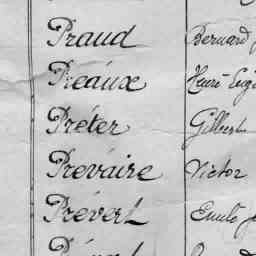 Praud Bernard
Préaux Henri Eug
Préter Gilbert
Prevaire Victor
Prévert Emile